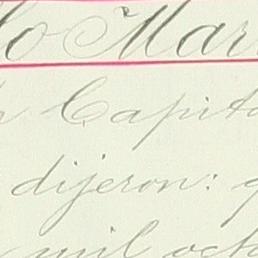 lo Mar
Capita
dijeron:
mil och